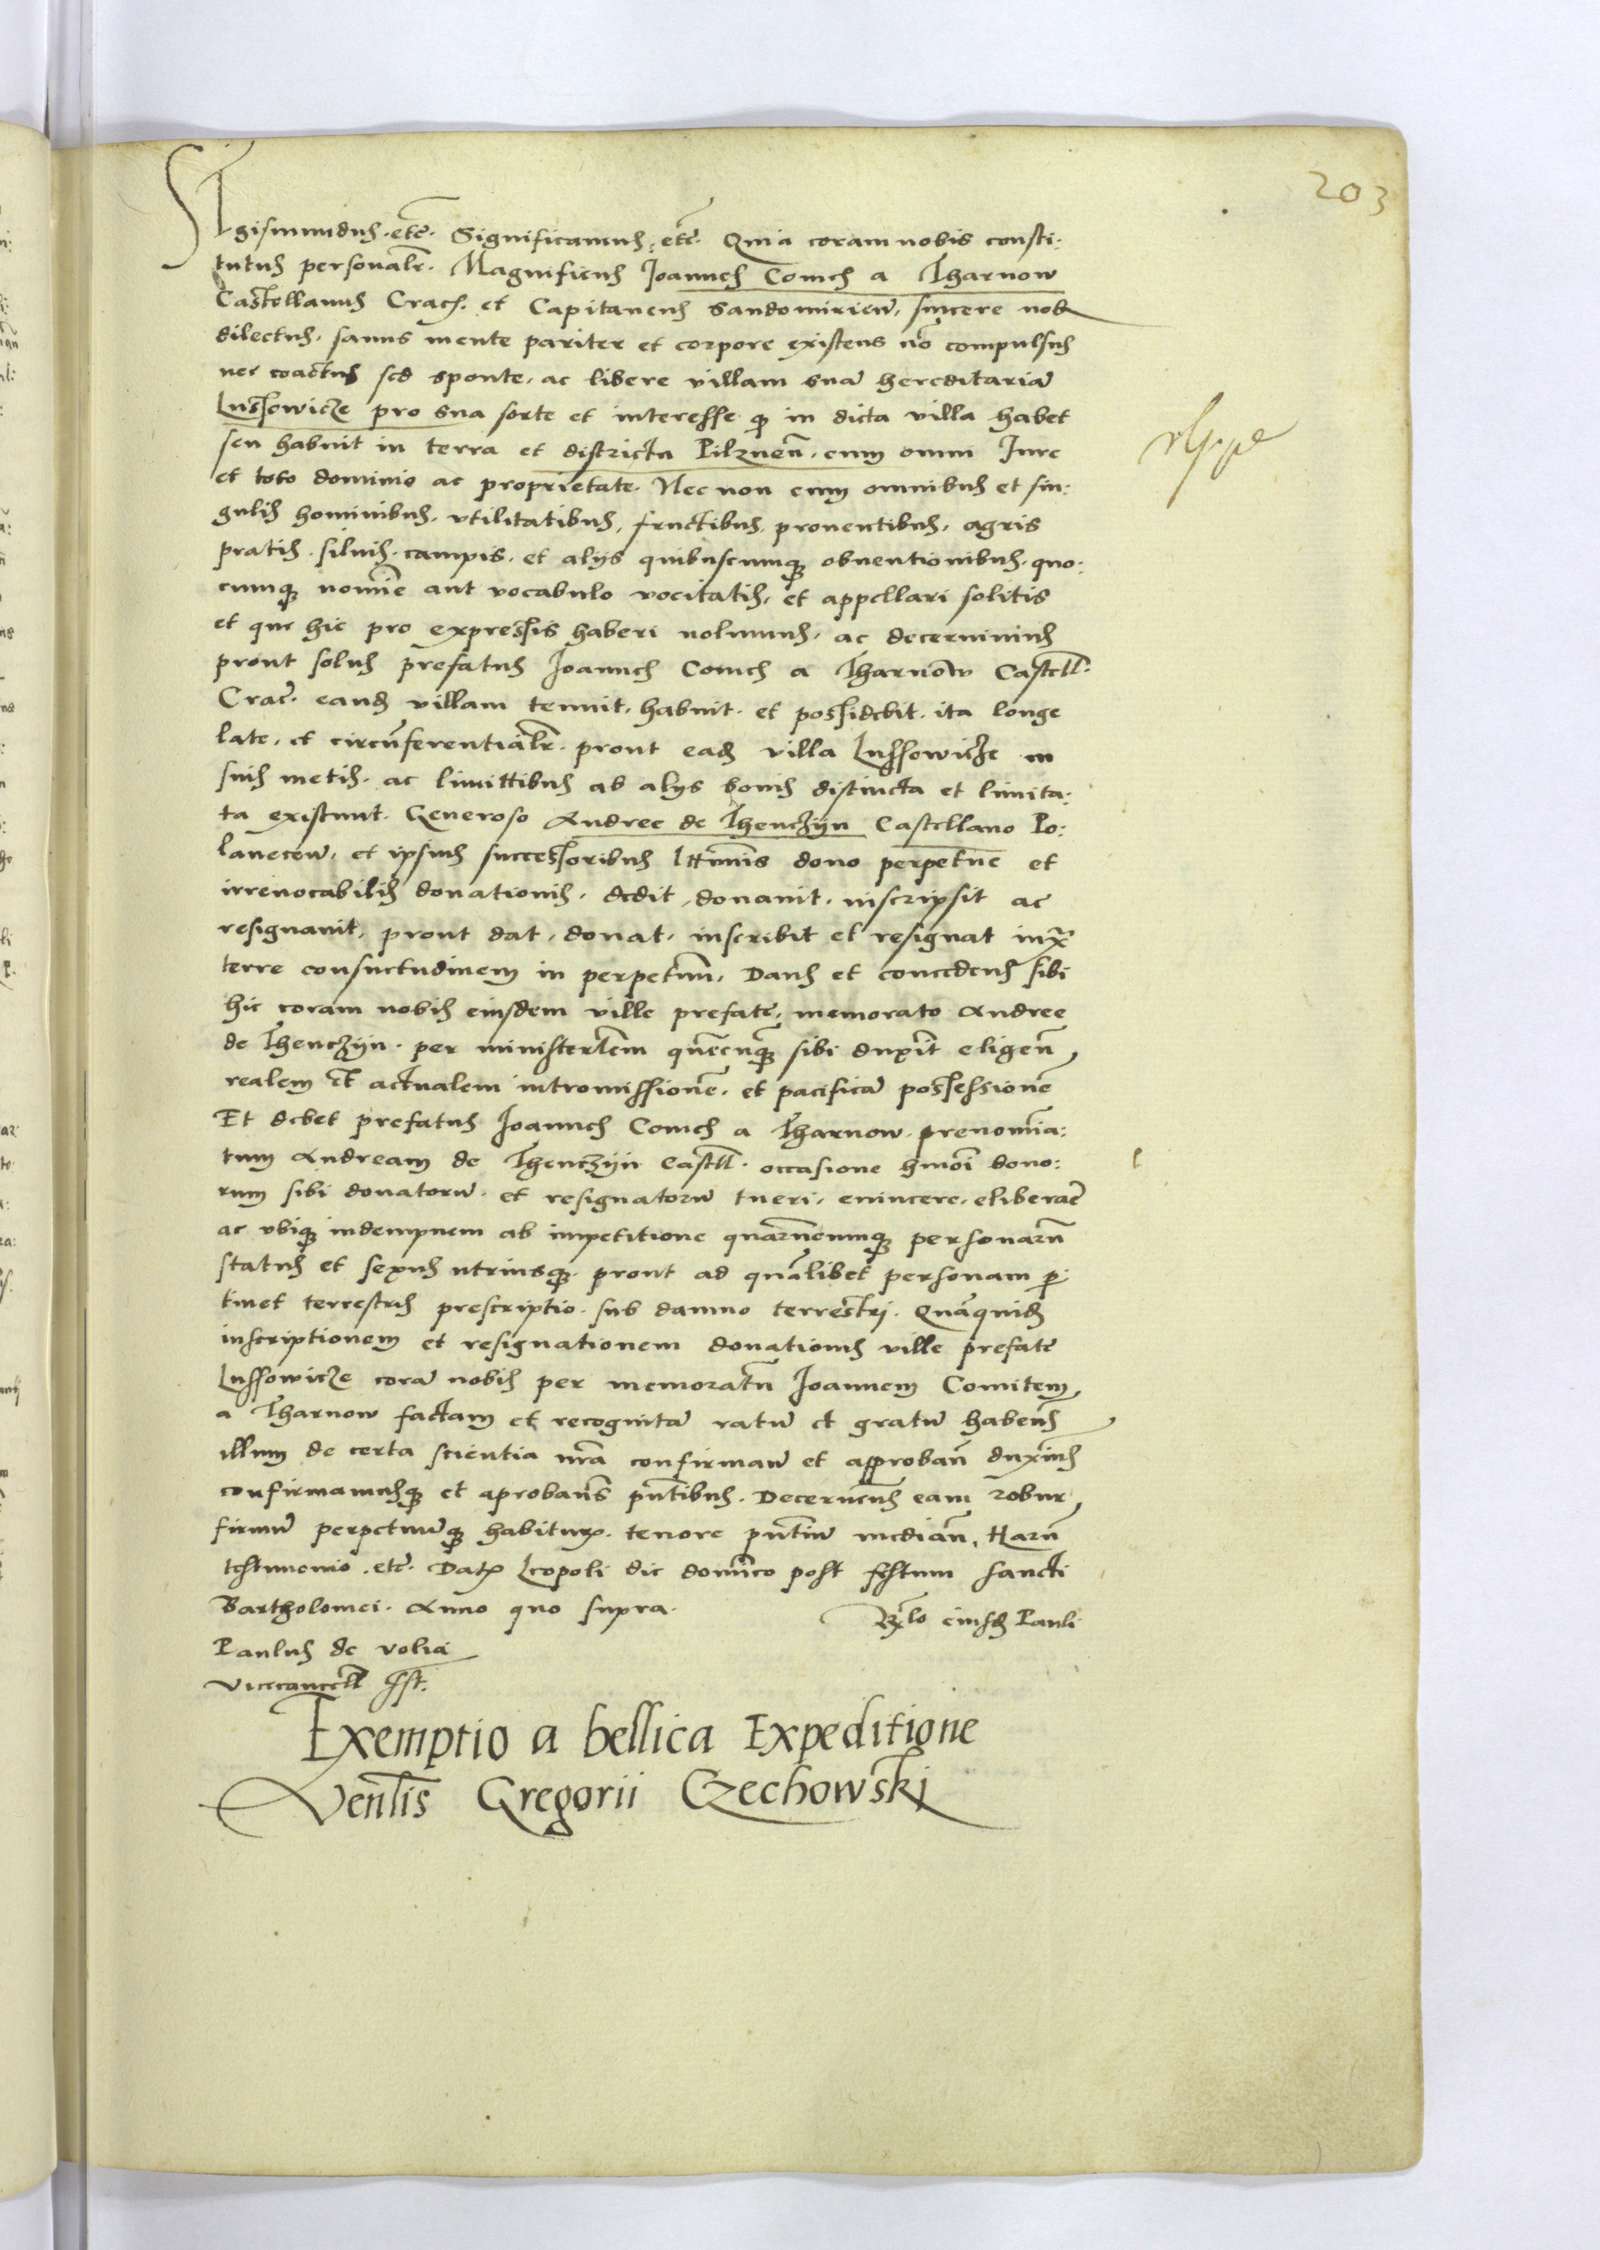 203
SIgismundus. etc̃. Significamus. etc̃. Quia coram nobis consti:
tutus personalr̃. Magnificus Joannes Comes a Tharnow
Castellanus Crac̃. et Capitaneus Sandomirien̄, sincere nob̃
dilectus. sanus mente pariter et corpore existens nō compulsus
nec coactus sed sponte. ac libere villam suā hereditariā
Lussowicze pro sua sorte et interesse. q̃ in dicta villa habet
seu habuit in terra et districtu Pilznen̄. cum omni Jure
et toto dominio ac proprietate. Nec non cum omnibus et sin:
gulis hominibus. vtilitatibus, fructibus prouentibus. agris
pratis. siluis. campis. et alijs quibuscunq̃ obuentionibus. quo:
cumq̃ nomīe aut vocabulo vocitatis, et appellari solitis
et que hic pro expressis haberi volumus, ac decernimus
prout solus prefatus Joannes Comes a Tharnow Castell̃.
Crac̃. eand̃ villam tenuit. habuit. et possidebit. ita longe
late. et circūferentialr̃. prout ead̃ villa Lussowicze in
suis metis. ac limittibus ab alijs bonis distincta et limita:
ta existunt. Generoso Andree de Thenczijn Castellano Po:
lanecen̄, et ipsius successoribus lttimis dono perpetue et
irreuocabilis donationis. dedit, donauit. inscripsit ac
resignauit, prout dat, donat. inscribit et resignat iux̃
terre consuetudinem in perpetuum, Dans et concedens sibi
hic coram nobis eiusdem ville prefate, memorato Andree
de Thenczijn. per ministerialem quēcunq̃ sibi duxerit eligen̄
realem et actualem intromissionē. et pacificā possessionē
Et debet prefatus Joannes Comes a Tharnow. prenomīa:
tum Andream de Thenczijn Castell̃. occasione hmōi bono:
rum sibi donatorū. et resignatorū tueri, euincere, eliberare
ac vbiq̃ indempnem ab impetitione quarūcumq̃ personarū
status et sexus utriusq̃. prout ad quālibet personam per
tinet terrestris prescriptio. sub damno terrestrj. Quāquid̃
inscriptionem et resignationem donationis ville prefate
Lussowicze corā nobis per memoratū Joannem Comitem
a Tharnow factam et recognitā ratū et gratū habens
illum de certa scientia nr̃a confirman̄ et approban̄ duximus
confirmamusq̃ et aprobams pñtibus. Decernens eam robur
firmū perpetuūq̃ habiturū. tenore pñtiū median̄. Harū
testimonio. etc̃. Dat̃ Leopoli die dominico post festum sancti
Bartholomei. Anno quo supra.
Rlo eiusd̃ Pauli
Paulus de volia
Vicecancell̃ sst.
Exemptio a bellica Expeditione
Venlis Gregorii Czechowskj